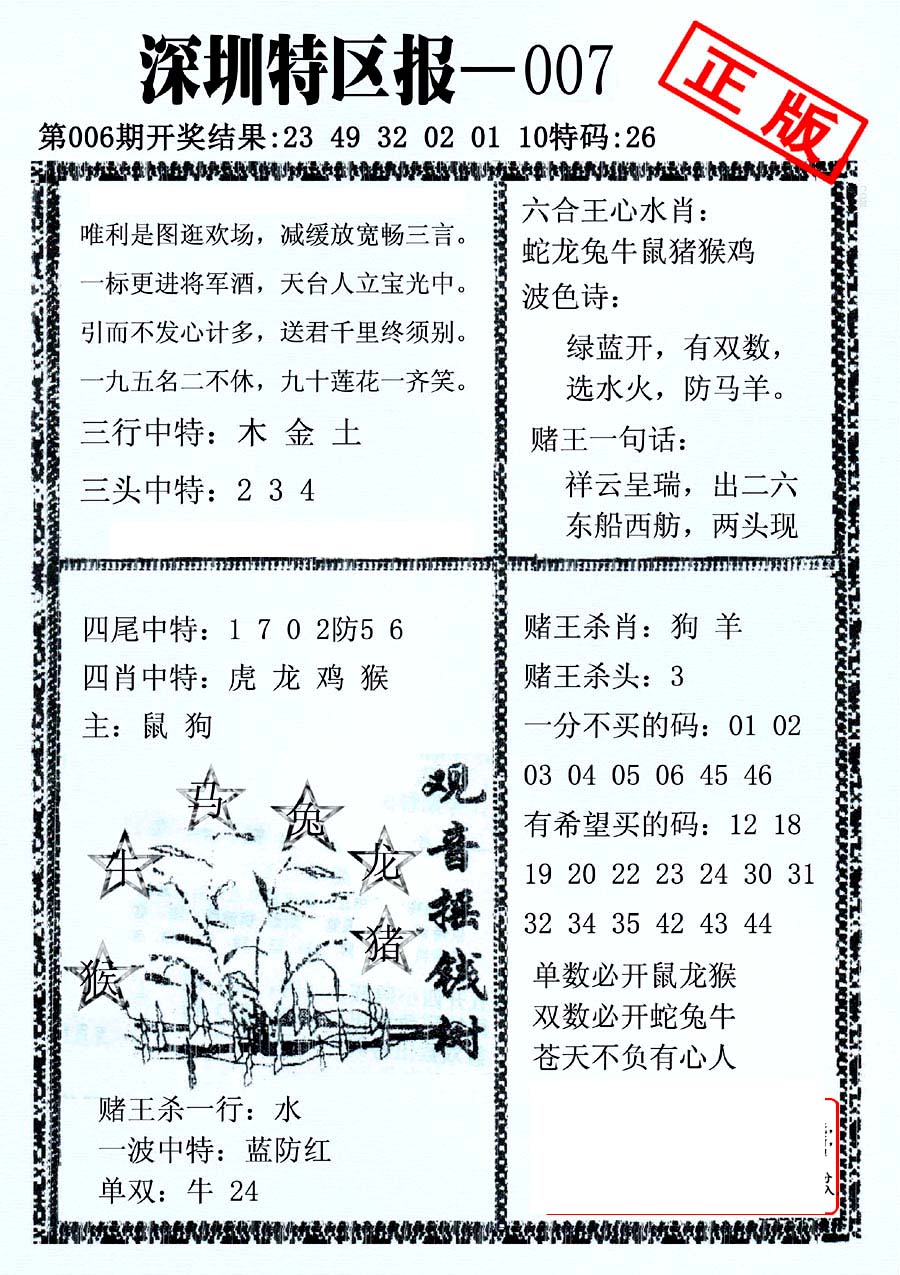 深圳特区报—007
正版
第006期开奖结果:23 49 32 02 01 10特码:26
唯利是图逛欢场，减缓放宽畅三言。
一标更进将军酒，天台人立宝光中。
引而不发心计多，送君千里终须别。
一九五名二不休，九十莲花一齐笑。
三行中特：木 金 土
三头中特：2 3 4
六合王心水肖：
蛇龙兔牛鼠猪猴鸡
波色诗：
绿蓝开，有双数，
选水火，防马羊。
赌王一句话：
祥云呈瑞，出二六
东船西舫，两头现
四尾中特：1 7 0 2防5 6
四肖中特：虎 龙 鸡 猴
主：鼠 狗
马
兔
牛
龙
猪
猴
观音摇钱树
赌王杀一行：水
一波中特：蓝防红
单双：牛 24
赌王杀肖：狗 羊
赌王杀头：3
一分不买的码：01 02
03 04 05 06 45 46
有希望买的码：12 18
19 20 22 23 24 30 31
32 34 35 42 43 44
单数必开鼠龙猴
双数必开蛇兔牛
苍天不负有心人